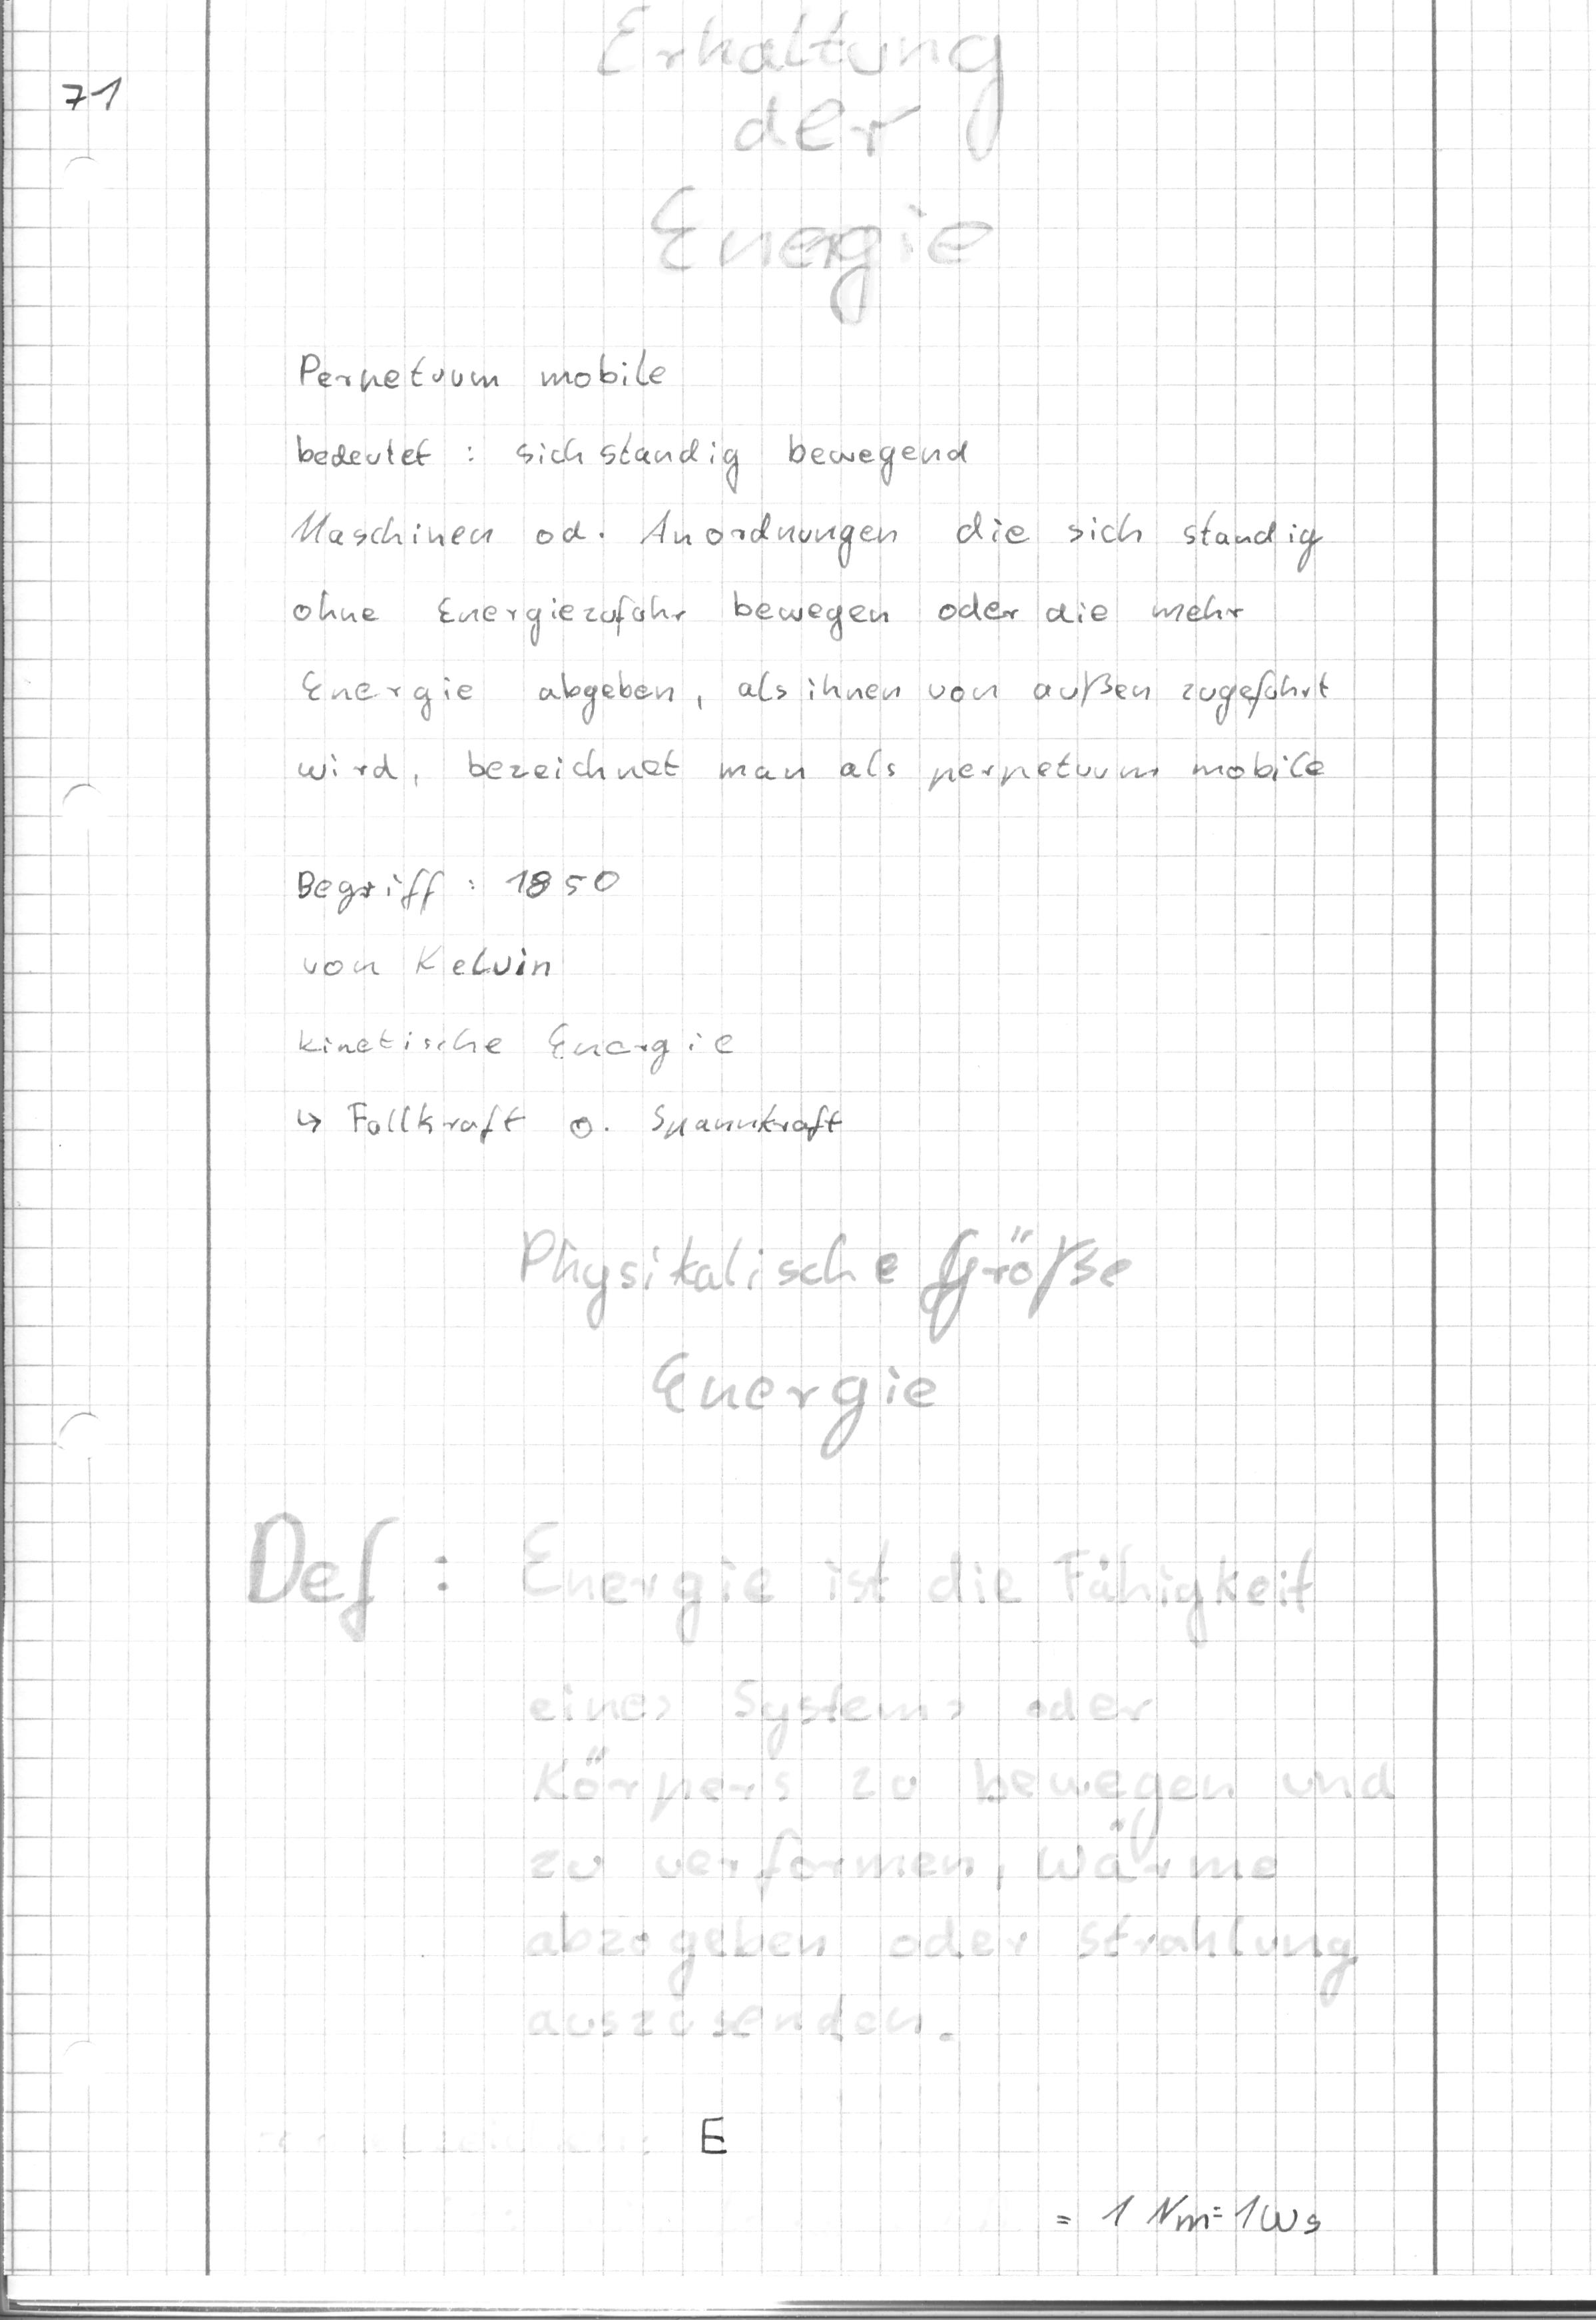 71
Erhaltung
der
Energie
Perpetuum mobile
bedeutet : sich ständig bewegend
Maschinen od. Anordnungen die sich ständig
ohne Energiezufuhr bewegen oder die mehr
Energie abgeben, als ihnen von außen zugeführt
wird, bezeichnet man als perpetuum mobile
Begriff : 1850
von Kelvin
kinetische Energie
↳ Fallkraft o. Spannkraft
Physikalische Größe
Energie
Def : Energie ist die Fähigkeit
eines Systems oder
Körpers zu bewegen und
zu verformen, Wärme
abzugeben oder Strahlung
auszusenden.
E
= 1 Nm = 1Ws